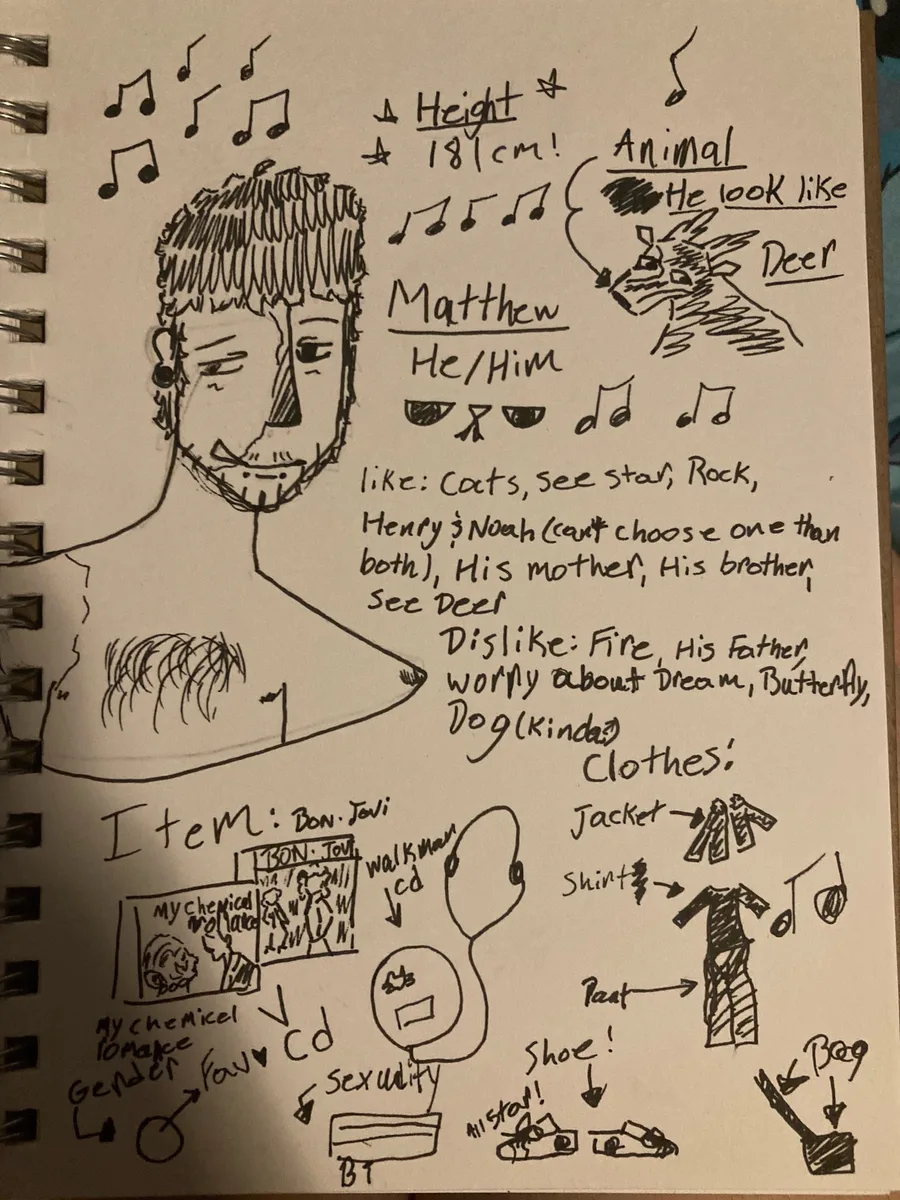 Height
181cm!
Animal
He look like
Deer
Matthew
He/Him
like: Cats, see star, Rock,
Henry & Noah (can't choose one than
both), His mother, His brother,
see Deer
Dislike: Fire, His Father,
worry about Dream, Butterfly,
Dog (kinda?)
Clothes:
Jacket
Shirt
Pant
Item: BON·Jovi
BON·Jovi
Walkman
cd
My chemical
romance
My chemicel
romance
Cd
Fav
Gender
Sexulity
BI
Shoe!
All star!
Bag